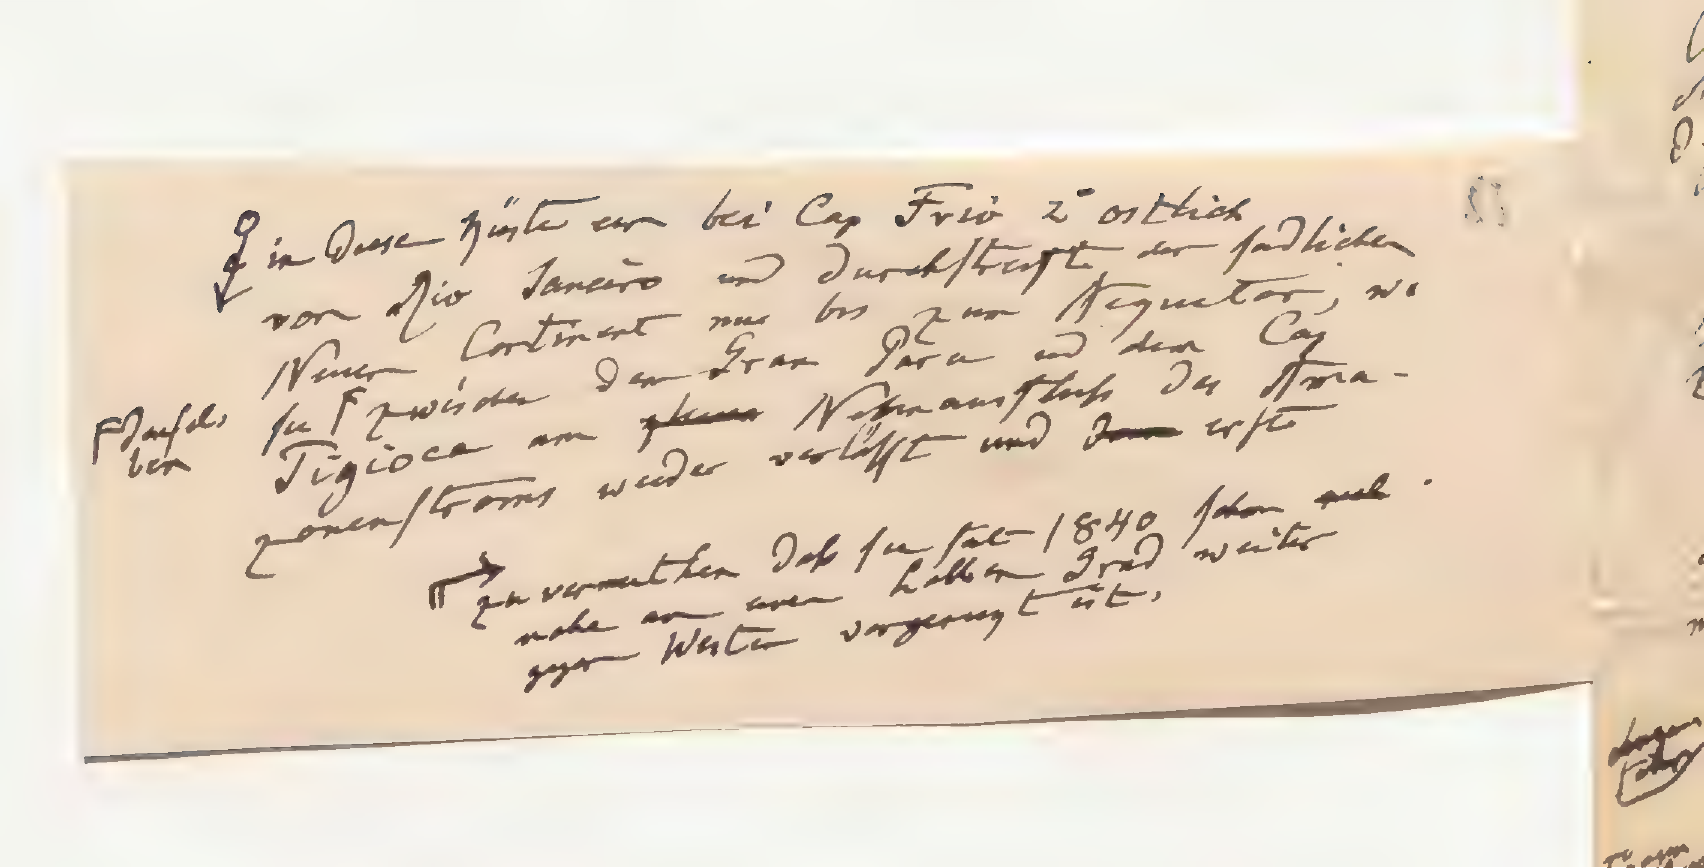 in diese Küste ein bei Cap Frio 2° ostlich
von Rio Janeiro und durchstreift den südlichen
Neuen Continent nur bis zum Aequator, wo
sie zwischen dem Gran Para und dem Cap
denselben
Tigioca am Nebenausfluss des Ama-
zonenstroms wieder verlässt und erst
zu vermuthen dass sie seit 1840 schon
nahe an einen halben Grad weiter
gegen Westen vorgerückt ist.